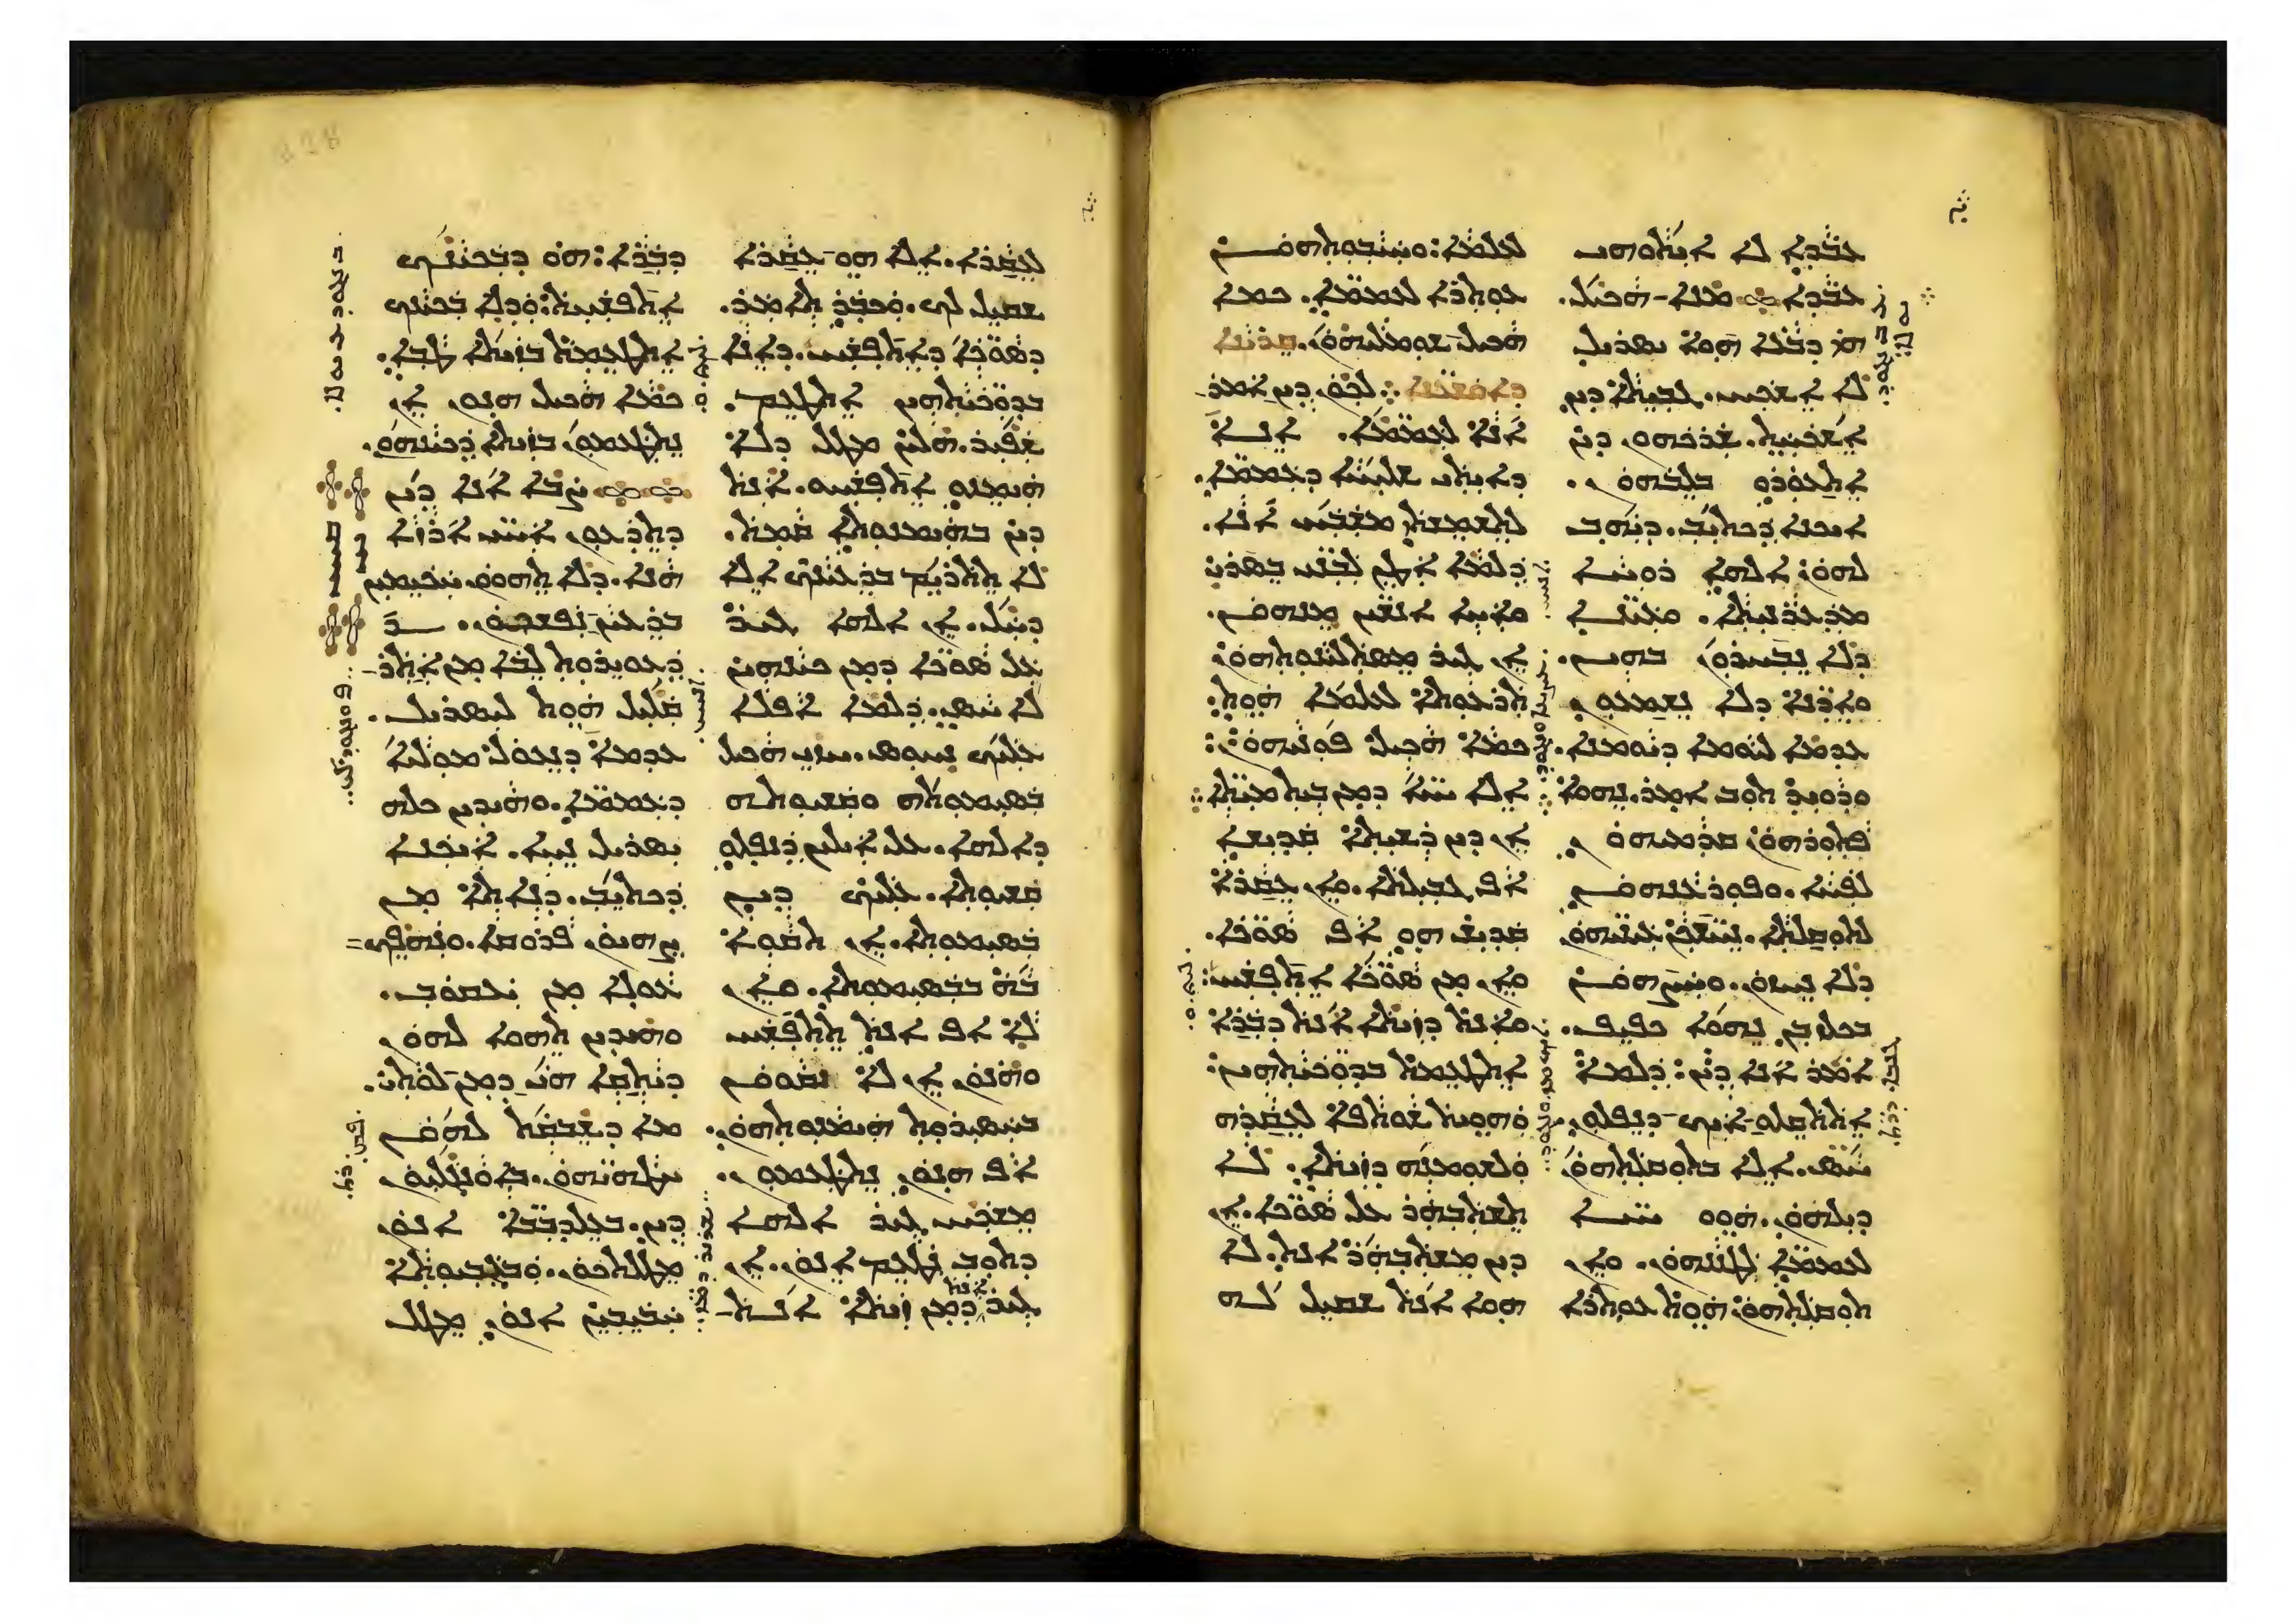 ܥܒܕܐ ܠܐ ܐܝܬܘܗܝ
ܥܒܕܐ ܡܢܐ ܗܟܝܠ.
ܗܝ ܕܒܥܐ ܗܘܐ ܐܝܣܪܝܠ
ܠܐ ܐܫܟܚ. ܓܒܝܬܐ ܕܝܢ
ܐܫܟܚܬ. ܫܪܟܗܘܢ ܕܝܢ
ܐܬܥܘܪܘ ܒܠܒܗܘܢ.
ܐܝܟܢܐ ܕܟܬܝܒ. ܕܝܗܒ
ܠܗܘܢ ܐܠܗܐ ܪܘܚܐ
ܡܥܪܥܪܢܝܬܐ. ܘܥܝܢܐ
ܕܠܐ ܢܒܚܪܘܢ ܒܗܝܢ.
ܘܐܕܢܐ ܕܠܐ ܢܫܡܥܘܢ
ܥܕܡܐ ܠܝܘܡܐ ܕܝܘܡܢܐ.
ܘܕܘܝܕ ܬܘܒ ܐܡܪ. ܢܗܘܐ
ܦܬܘܪܗܘܢ ܩܕܡܝܗܘܢ
ܠܦܚܐ. ܘܦܘܪܥܢܗܘܢ
ܠܬܘܩܠܬܐ. ܢܚܫܟܢ ܥܝܢܝܗܘܢ
ܕܠܐ ܢܚܙܘܢ. ܘܚܨܗܘܢ
ܒܟܠܙܒܢ ܢܗܘܐ ܟܦܝܦ.
ܐܡܪ ܐܢܐ ܕܝܢ: ܕܠܡܐ
ܐܬܬܩܠܘ ܐܝܟ ܕܢܦܠܘܢ.
ܚܣ. ܐܠܐ ܒܬܘܩܠܬܗܘܢ
ܕܝܠܗܘܢ. ܗܘܘ ܚܝܐ
ܠܥܡܡܐ ܠܛܢܢܗܘܢ. ܘܐܢ
ܬܘܩܠܬܗܘܢ: ܗܘܬ ܥܘܬܪܐ
ܠܥܠܡܐ: ܘܚܝܒܘܬܗܘܢ
ܥܘܬܪܐ ܠܥܡܡܐ. ܟܡܐ
ܗܟܝܠ ܫܘܡܠܝܗܘܢ.
ܠܟܘܢ ܕܝܢ ܐܡܪ
ܐܢܐ ܠܥܡܡܐ. ܐܢܐ
ܕܐܝܬܝ ܫܠܝܚܐ ܕܥܡܡܐ.
ܠܬܫܡܫܬܝ ܡܫܒܚ ܐܢܐ.
ܕܠܡܐ ܐܛܢ ܠܒܢܝ ܒܣܪܝ
ܘܐܚܐ ܐܢܫܝܢ ܡܢܗܘܢ.
ܐܢ ܓܝܪ ܡܣܬܠܝܢܘܬܗܘܢ
ܬܪܥܘܬܐ ܠܥܠܡܐ ܗܘܬ.
ܟܡܐ ܗܟܝܠ ܦܘܢܝܗܘܢ
ܐܠܐ ܚܝܐ ܕܡܢ ܒܝܬ ܡܝܬܐ
ܐܢ ܕܝܢ ܪܫܝܬܐ ܩܕܝܫܐ
ܐܦ ܓܒܝܠܬܐ. ܘܐܢ ܥܩܪܐ
ܩܕܝܫ ܗܘ ܐܦ ܣܘܟܐ.
ܘܐܢ ܡܢ ܣܘܟܐ ܐܬܦܫܚ:
ܘܐܢܬ ܕܙܝܬܐ ܐܢܬ ܕܒܪܐ
ܐܬܛܥܡܬ ܒܕܘܟܝܬܗܝܢ:
ܘܗܘܝܬ ܫܘܬܦܐ ܠܥܩܪܗ
ܘܠܫܘܡܢܗ ܕܙܝܬܐ. ܠܐ
ܬܫܬܒܗܪ ܥܠ ܣܘܟܐ. ܐܢ
ܕܝܢ ܡܫܬܒܗܪ ܐܢܬ. ܠܐ
ܗܘܐ ܐܢܬ ܫܩܝܠ ܠܗ
ܠܥܩܪܐ. ܐܠܐ ܗܘ ܥܩܪܐ
ܫܩܝܠ ܠܟ. ܘܟܒܪ ܬܐܡܪ.
ܕܣܘܟܐ ܕܐܬܦܫܚ. ܕܐܢܐ
ܒܕܘܟܝܬܗܝܢ ܐܬܛܥܡ.
ܫܦܝܪ. ܗܠܝܢ ܡܛܠ ܕܠܐ
ܗܝܡܢܘ ܐܬܦܫܚܘ. ܐܢܬ
ܕܝܢ ܒܗܝܡܢܘܬܐ ܩܡܬ.
ܠܐ ܬܬܪܝܡ ܒܪܥܝܢܟ ܐܠܐ
ܕܚܠ. ܐܢ ܐܠܗܐ ܓܝܪ
ܥܠ ܣܘܟܐ ܕܡܢ ܟܝܢܗܝܢ
ܠܐ ܚܣ. ܕܠܡܐ ܐܦܠܐ
ܥܠܝܟ ܢܚܘܣ. ܚܙܝ ܗܟܝܠ
ܒܣܝܡܘܬܗ ܘܩܫܝܘܬܗ
ܕܐܠܗܐ. ܥܠ ܐܝܠܝܢ ܕܢܦܠܘ
ܩܫܝܘܬܐ. ܥܠܝܟ ܕܝܢ
ܒܣܝܡܘܬܐ. ܐܢ ܬܩܘܐ
ܒܗ ܒܒܣܝܡܘܬܐ. ܘܐܢ
ܠܐ ܐܦ ܐܢܬ ܬܬܦܫܚ
ܘܗܢܘܢ ܐܢ ܠܐ ܢܩܘܘܢ
ܒܚܣܝܪܘܬ ܗܝܡܢܘܬܗܘܢ.
ܐܦ ܗܢܘܢ ܢܬܛܥܡܘܢ.
ܡܫܟܚ ܓܝܪ ܐܠܗܐ
ܕܬܘܒ ܢܛܥܡ ܐܢܘܢ. ܐܢ
ܐܢܬ
ܓܝܪ ܕܡܢ ܙܝܬܐ ܐܢܬ
ܕܒܪܐ: ܗܘ ܕܒܟܝܢܟ
ܐܬܦܫܚܬ: ܘܕܠܐ ܒܟܝܢܟ
ܐܬܛܥܡܬ ܒܙܝܬܐ ܛܒܐ.
ܟܡܐ ܗܟܝܠ ܗܢܘܢ ܐܢ
ܢܬܛܥܡܘܢ ܒܙܝܬܐ ܕܟܝܢܗܘܢ.
ܨܒܐ ܐܢܐ ܕܝܢ
ܕܬܕܥܘܢ ܐܚܝ ܐܪܙܐ
ܗܢܐ. ܕܠܐ ܬܗܘܘܢ ܚܟܝܡܝܢ
ܒܪܥܝܢ ܢܦܫܟܘܢ.
ܕܥܘܝܪܘܬ ܠܒܐ ܡܢ ܐܬܪ
ܩܠܝܠ ܗܘܬ ܠܐܝܣܪܝܠ.
ܥܕܡܐ ܕܢܥܘܠ ܡܘܠܝܐ
ܕܥܡܡܐ. ܘܗܝܕܝܢ ܟܠܗ
ܐܝܣܪܝܠ ܢܚܐ. ܐܝܟܢܐ
ܕܟܬܝܒ. ܕܢܐܬܐ ܡܢ
ܨܗܝܘܢ ܦܪܘܩܐ. ܘܢܗܦܟ
ܥܘܠܐ ܡܢ ܝܥܩܘܒ.
ܘܗܝܕܝܢ ܬܗܘܐ ܠܗܘܢ
ܕܝܬܩܐ ܗܝ ܕܡܢ ܠܘܬܝ.
ܡܐ ܕܫܒܩܬ ܠܗܘܢ
ܚܛܗܝܗܘܢ. ܒܐܘܢܓܠܝܘܢ
ܕܝܢ. ܒܥܠܕܒܒܐ ܐܢܘܢ
ܡܛܠܬܟܘܢ. ܘܒܓܒܝܘܬܐ
ܚܒܝܒܝܢ ܐܢܘܢ ܡܛܠ